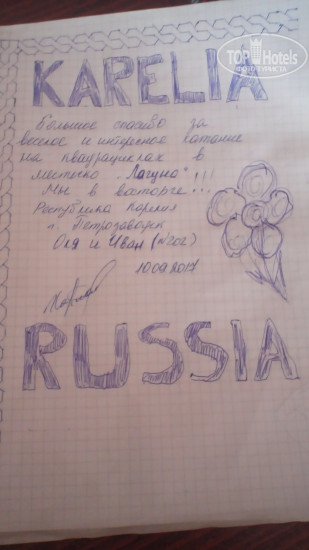 TOP Hotels
KARELIA
Большое спасибо за
веселое и интересное катание
на квадрациклах в
местеко „Лагуна"!!!
Мы в восторге!!!
Республика Карелия
г. Петрозаводск
Оля и Иван (№202)
10.09.2017
RUSSIA